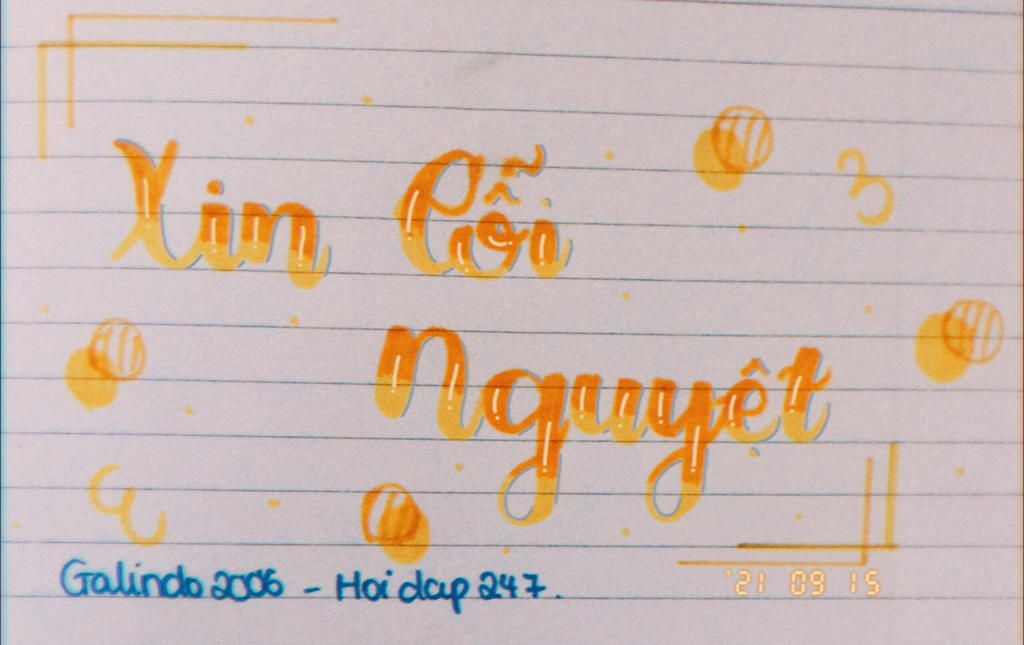 Xin lỗi
Nguyệt
Galindo 2006 - Hoidap 247.
'21 09 15